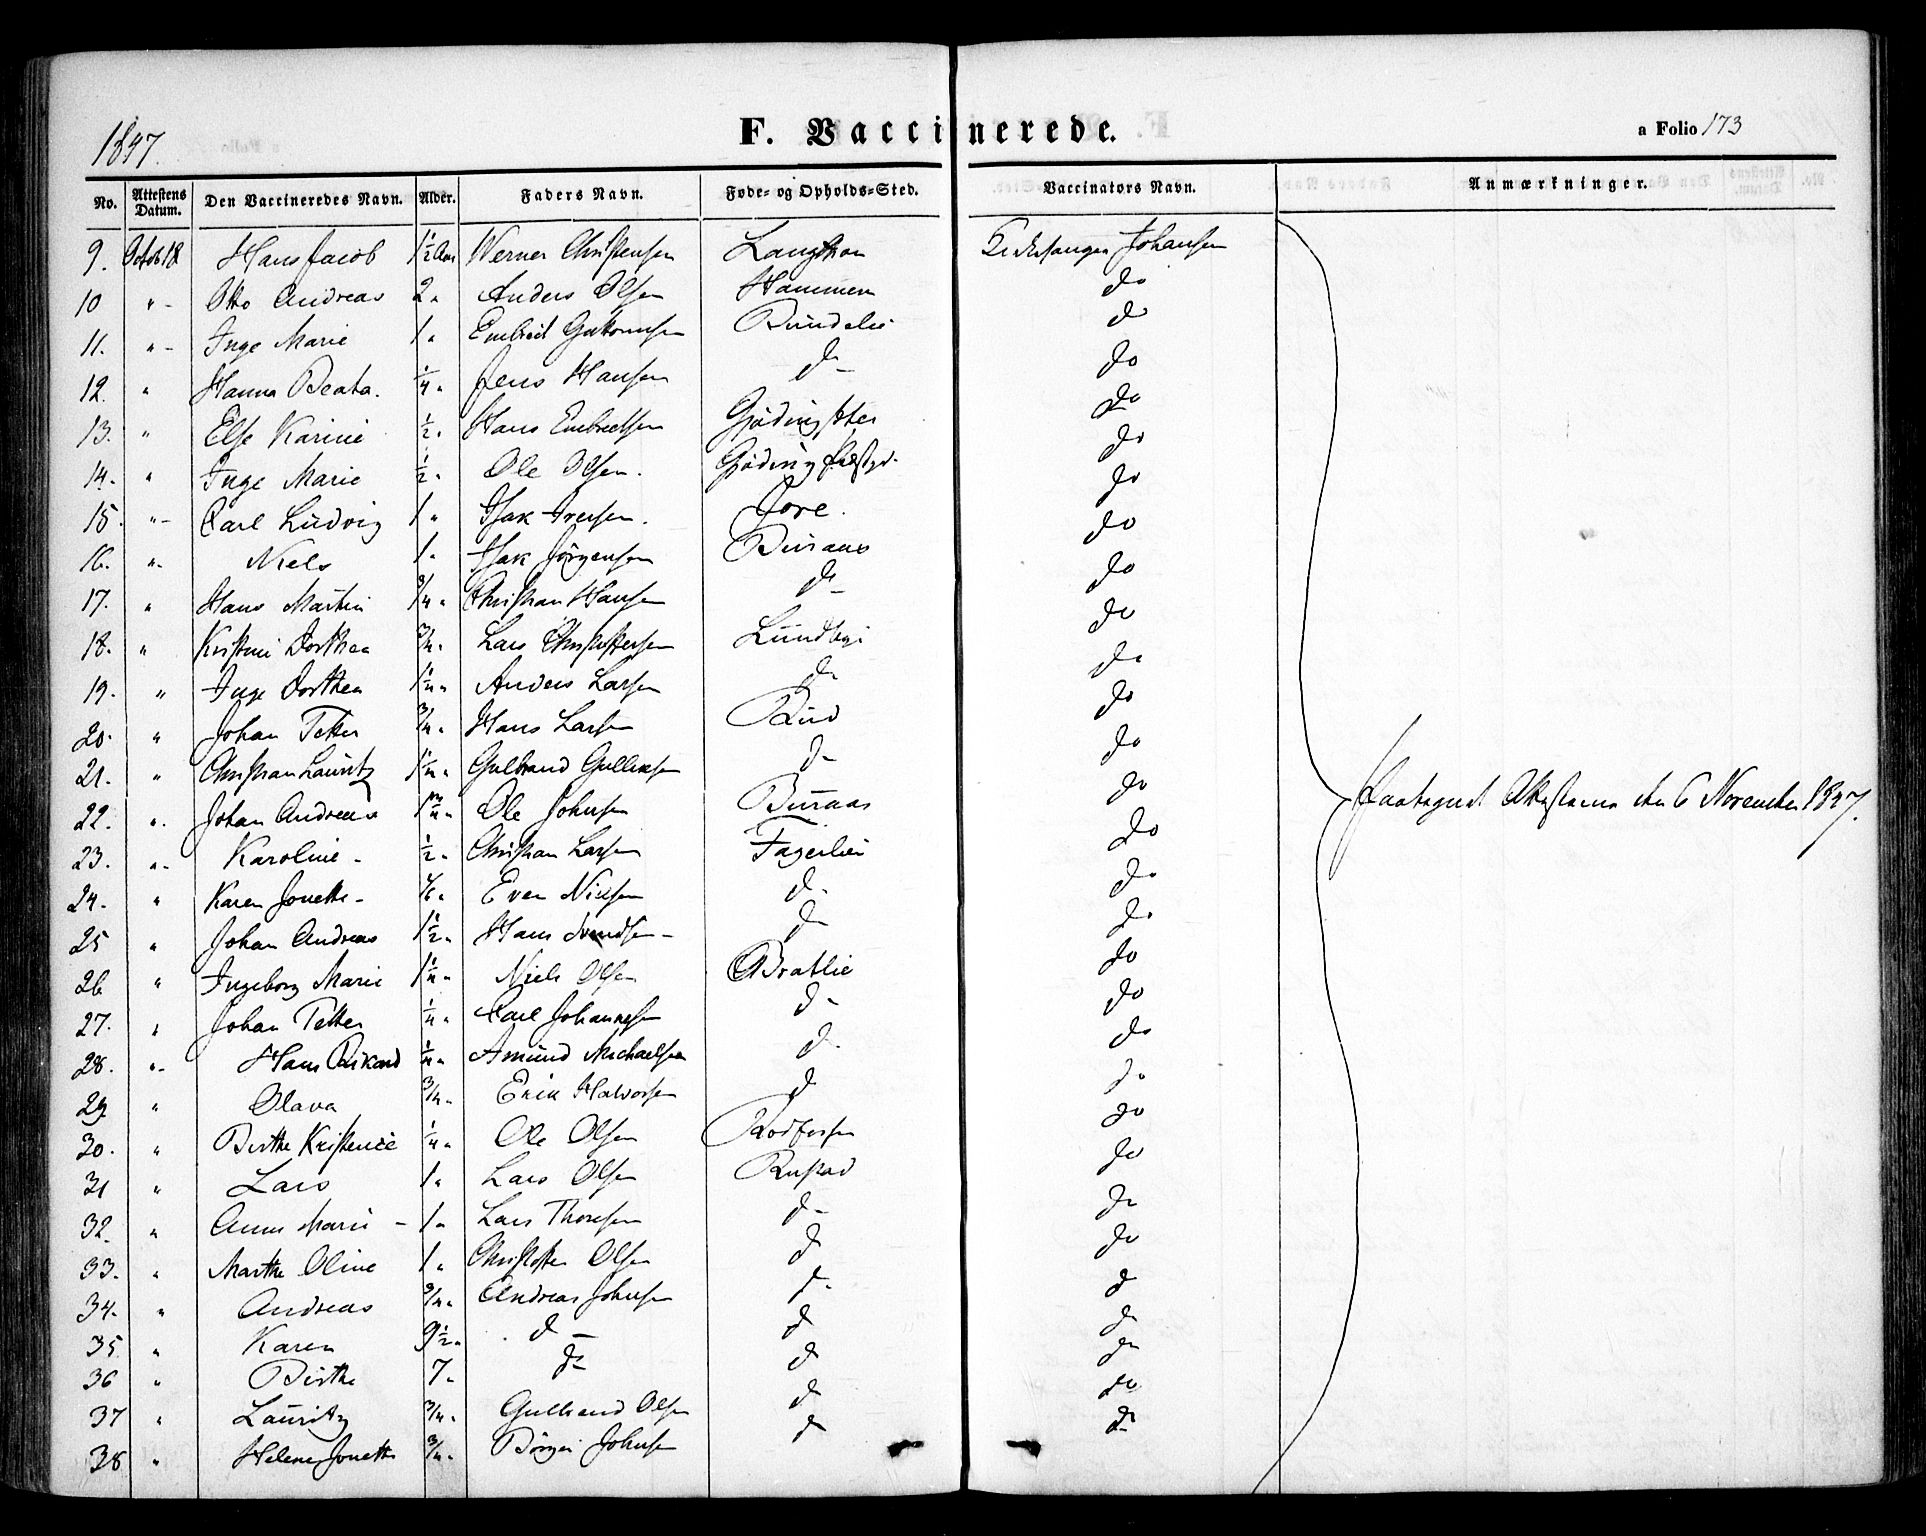 1847.
F. Vaccinerede.
a Folio 173
No. Attestens Datum. Den Vaccineredes Navn. Alder. Faders Navn. Føde- og Opholds-Sted. Vaccinators Navn. Anmærkninger.
9. Octob 18 Hans Jacob 1 1/2 Aar Werner Christensen Johansen
10 " - Otto Andreas 2 " Anders Olsen Hammeren do
11. " - Inge Marie 1 " Embret Guttormsen do
12. " Hanna Beata. 1/4 " Jens Hansen d - do
13. " Else Karine 1/2 " Hans Embretsen do
14. " Inge Marie 1/2 " Ole Olsen. do
15. " - Carl Ludvig 1 " Isak Iversen. do
16. " - Niels 1 " Isak Jörgensen Buraas do
17. " Hans Martin 3/4 " Christian Hansen d - do
18. " Kristine Dorthea 3/4 " Lars Christophersen Lundbye do
19. " Inge Dorthea 1 1/4 " Anders Larsen do do
20. " Johan Petter 3/4 " Hans Larsen Rud do
21. " Christian Lauritz 1 1/4 " Gulbrand Gulliksen d - do
22. " Johan Andreas 1 3/4 " Ole Johnsen Buraas do
23. " - Karoline - 1/2 " Christian Larsen Fagerlie do
24. " Karen Jonette - " Even Nielsen d - do
25 " Johan Andreas 1 1/2 " Hans Svendsen - d - do
26 " Ingeborg Marie 1 1/4 " Niels Olsen Bratlie do
27. " Johan Petter 1/4 " Carl Johannesen d - do
28. " - Hans Rikard 1/4 " Amund Michaelsen d - do
29 " Olava 3/4 " Erik Halvorsen d do
30. " Birthe Kristence 1/4 " Ole Olsen Kodfossen do
31 " Lars 1 " Lars Olsen Rustad do
32. " Anne Marie - 1 " Lars Thoresen d - do
33. " Marthe Oline 1 " Christoffer Olsen d do
34. " Andreas 3/4 " Andreas Johnsen d - d
35 " Karen 9 1/2 " d - d do
36 " Birthe 7 " do d do
37 " Lauritz 3/4 " Gulbrand Olsen d do
38 " Helene Jonette 3/4 " Börger Johnsen d do
modtaget Attesterne den 6 November 1847.